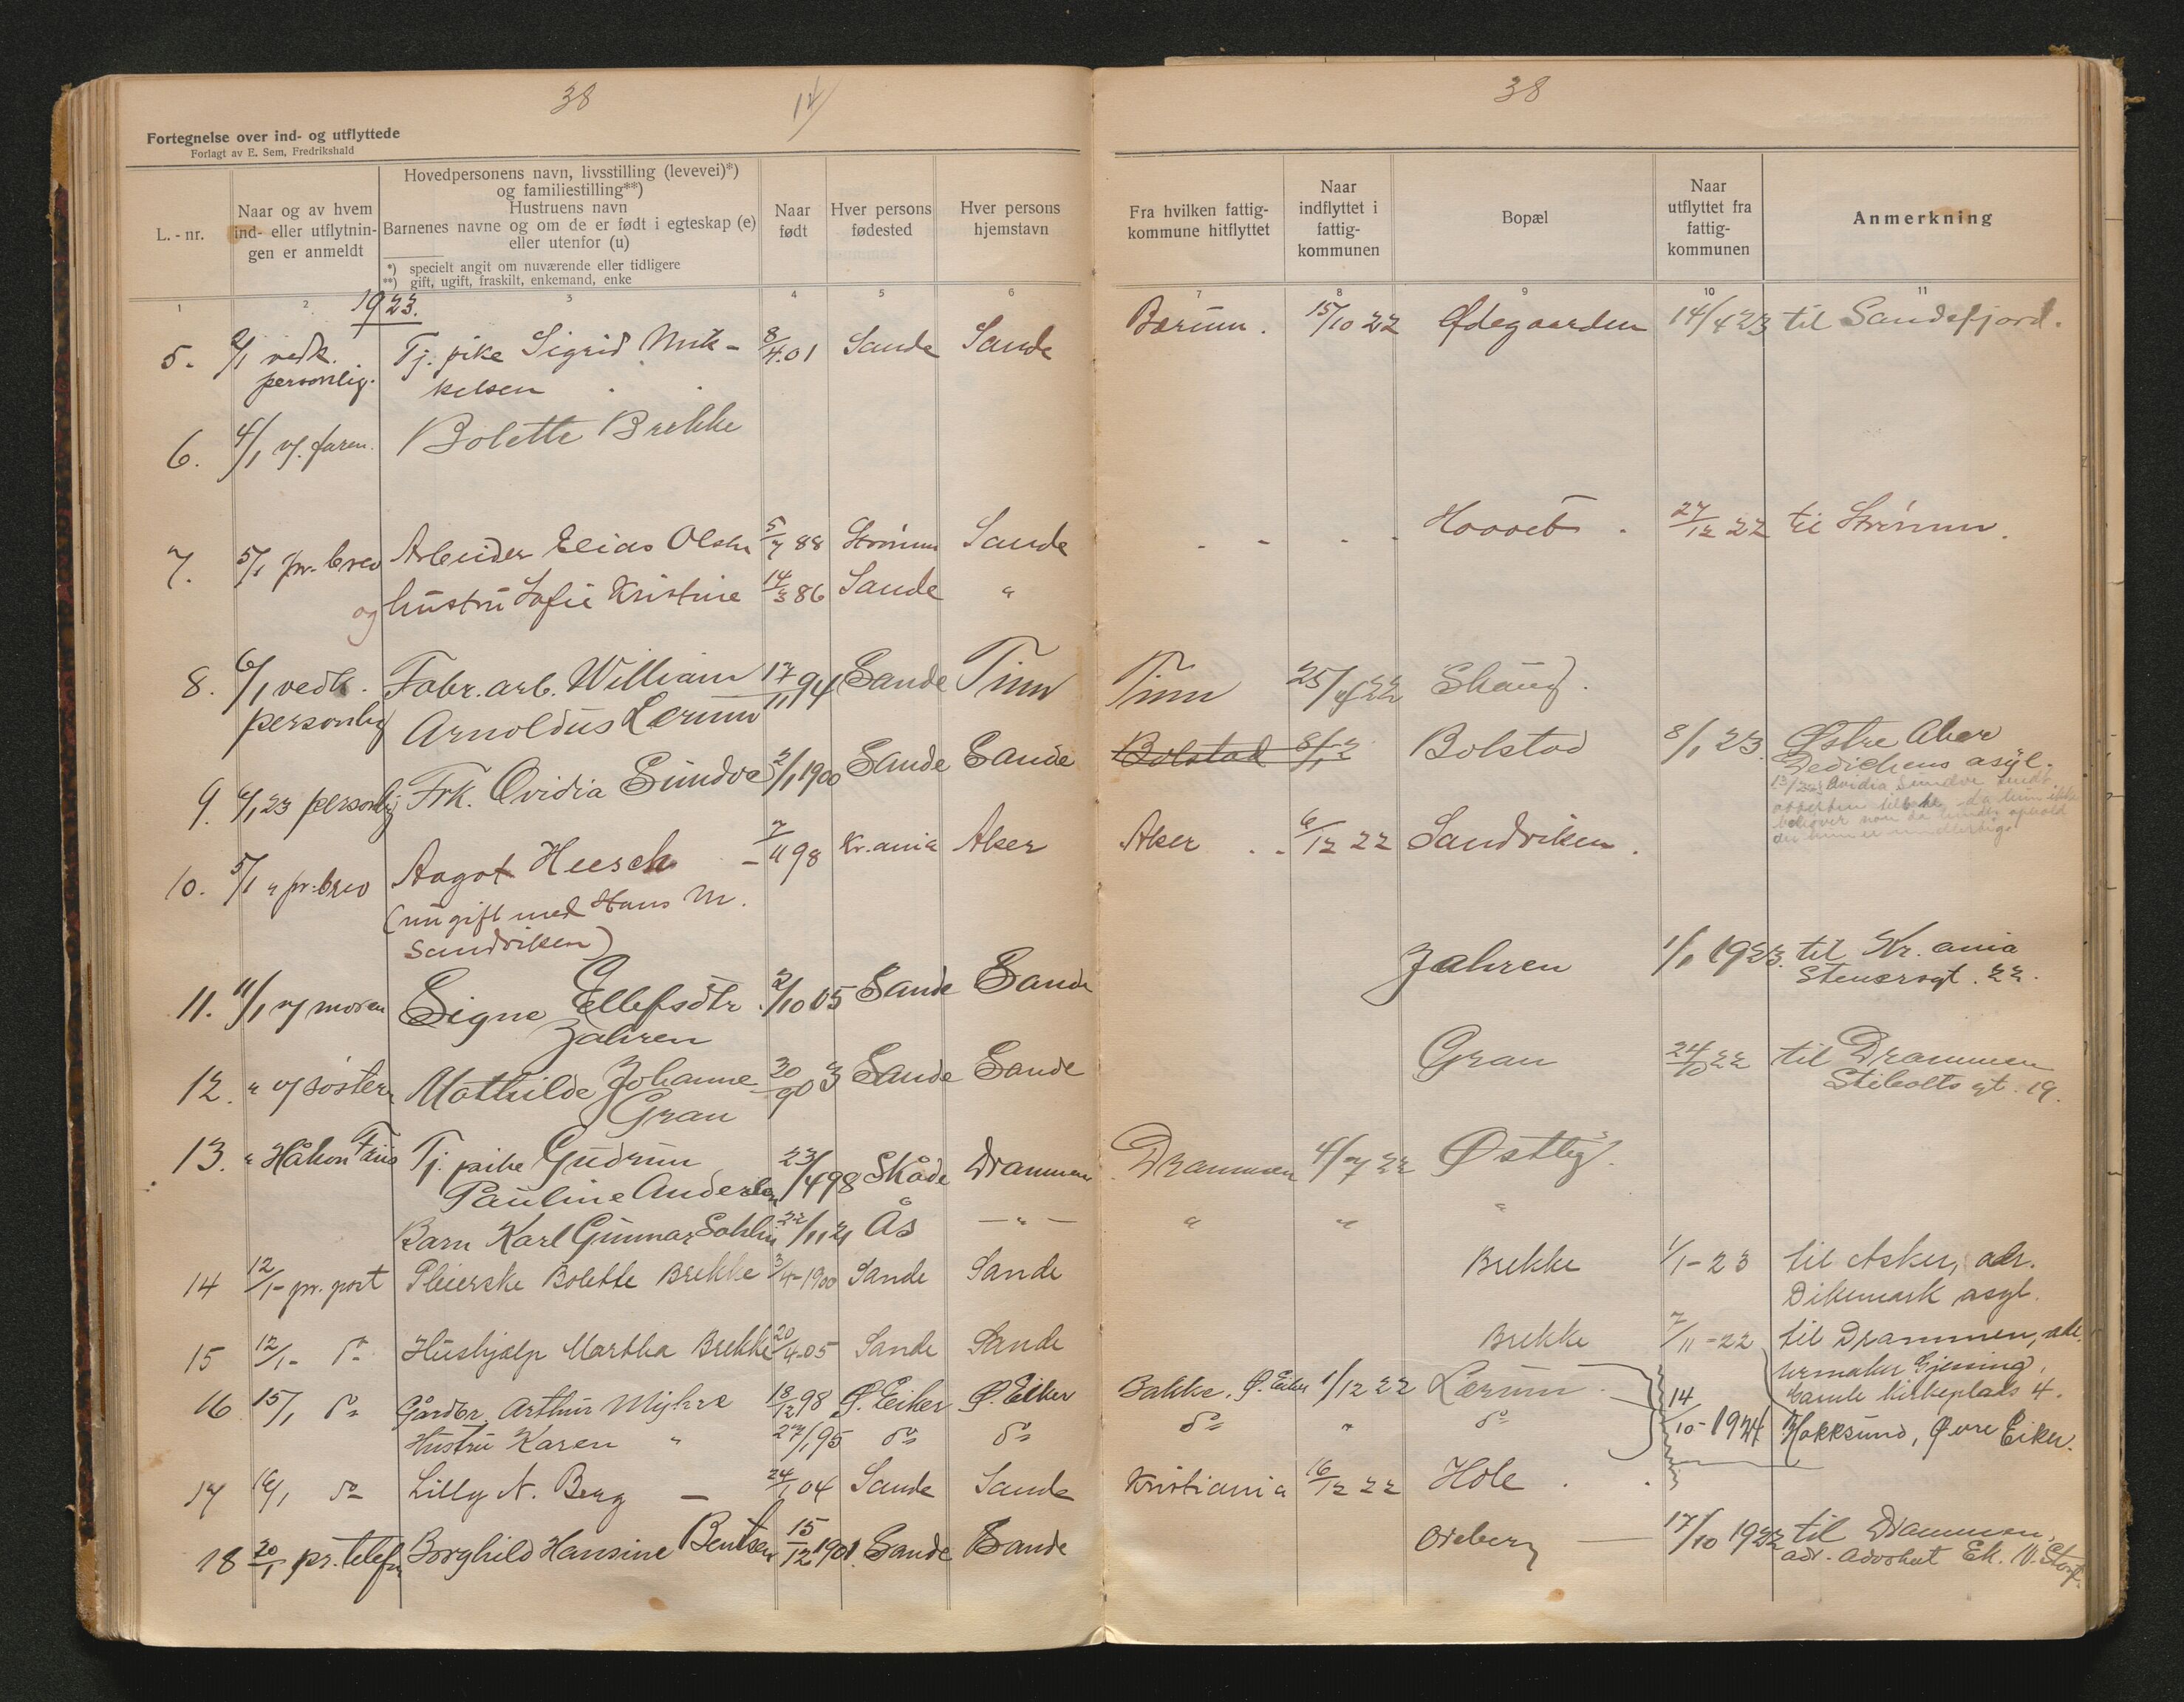 38
12/
38
Fortegnelse over ind- og utflyttede
Forlagt av E. Sem, Fredrikshald
L.-nr.
Naar og av hvem
ind- eller utflytnin-
gen er anmeldt
Hovedpersonens navn, livsstilling (levevei)*)
og familiestilling**)
Hustruens navn
Barnenes navne og om de er født i egteskap (e)
eller utenfor (u)
*) specielt angit om nuværende eller tidligere
**) gift, ugift, fraskilt, enkemand, enke
Naar
født
Hver persons
fødested
Hver persons
hjemstavn
Fra hvilken fattig-
kommune hitflyttet
Naar
indflyttet i
fattig-
kommunen
Bopæl
Naar
utflyttet fra
fattig-
kommunen
Anmerkning
1 2 3 4 5 6 7 8 9 10 11
1923.
5. 2/1 vedk. Tj. pike Sigrid Mik- 8/4.01 Sande Sande Bærum. 15/10 22 Ødegaarden 14/4 23 til Sandefjord.
personlig. kelsen
6. 4/1 v/ faren. Bolette Brekke
7. 5/1 pr. brev Arbeider Elias Olsen 5/7 88 Strømm Sande - - - - Hoovet. 27/12 22 til Strømm.
og hustru Sofie Kristine 14/3 86 Sande "
8. 6/1 vedk. Fabr. arb. William 17/11 94 Sande Tinn Tinn 25/4 22 Skaug.
personlig Arnoldus Lerum
9. 6/1 23 personlig Frk. Ovidia Sundve 2/1 1900 Sande Sande Bolstad Bolstad 8/1 23 Østre Aker
Dedichens asyl.
Ovidia Sundve sendt
tilbake, da hun ikke
behøver
10. 5/1 " pr. brev Aagot Heesch - 7/11 98 Kr.ania Aker Aker . . 6/12 22 Sandviken.
(nu gift med Hans M.
Sandviken)
11. 11/1 v/ moren Signe Ellefsdtr 2/10 05 Sande Sande Jahren 1/1 1923. til Kr.ania
Jahren Stensrogt. 22.
12. " v/ søster Mathilde Johanne 30/9 03 Sande Sande Gran 24/10 22 til Drammen
Gran Stibolts gt. 19.
13. " Håkon Friis Tj. pike Gudrun 23/4 98 Skåde Drammen Drammen 4/7 22 Østby.
Pauline Andersen
Barn Karl Gunnar Sohlin 22/11 21 Ås — " — " " "
14 12/1- pr. post Pleierske Bolette Brekke 3/4-1900 Sande Sande Brekke 1/1-23 til Asker, adr.
Dikemark asyl.
15 12/1- do Hushjælp Martha Brekke 20/4-05 Sande Sande Brekke 7/11-22 til Drammen, adr.
urmaker Gjessing,
Gamle kirkeplads 4.
16 15/1 do Gårdbr. Arthur Myhre 18/12 98 Ø. Eiker Ø. Eiker Bakke, Ø. Eiker 1/12 22 Lerum 14/10-1924 Hokksund, Øvre Eiker.
Hustru Karen " 27/1 95 do do do " do
17 16/1 do Lilly N. Berg — 24/1 04 Sande Sande Kristiania 16/12 22 Hole .
18 20/1 pr. telef. Borghild Hansine Bentsen 15/12 1901. Sande Sande Oreberg — 17/10 1922 til Drammen,
adr. Advokat Ek.